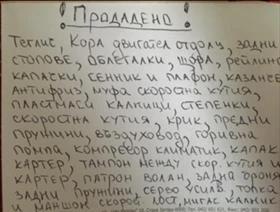 ! Продадено !
Теглич, Кора двигател отдолу, задни
стопове, обтегалки, щора, рейлинг
капаски, сенник и плафон, казанче
Антифриз, муфа скоростна кутия,
пластмаси калници, степенки,
скоростна кутия, крик, предни
пружини, въздуховод, горивна
помпа, компресор климатик, капак
картер, тампон между скор. кутия и
картер, патрон волан, задна броня
задни пружини, серво усилв., топка
и маншон скорой. лост, мигач калник